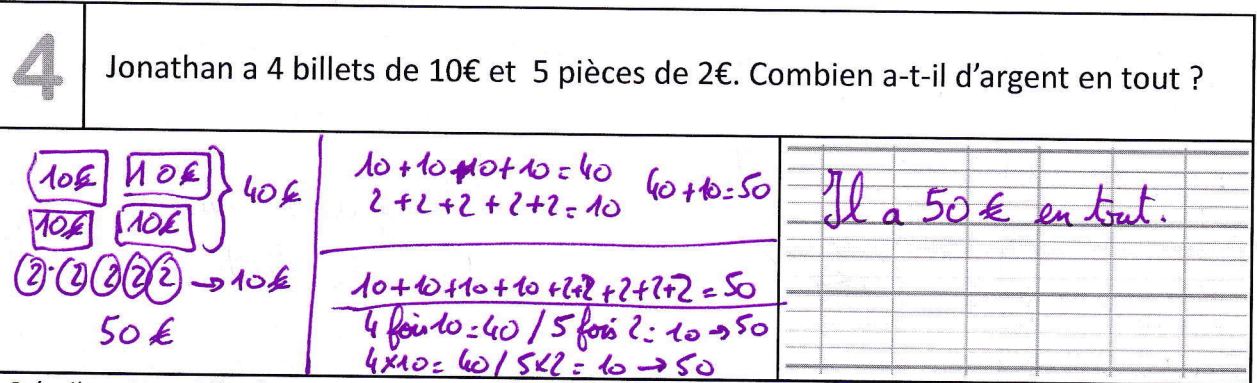 4
Jonathan a 4 billets de 10€ et 5 pièces de 2€. Combien a-t-il d'argent en tout ?
10€ 10€ } 40€
10€ 10€
2 2 2 2 2 → 10€
50 €
10+10+10+10=40
2+2+2+2+2=10
40+10=50
10+10+10+10+2+2+2+2+2=50
4 fois 10=40 / 5 fois 2=10 → 50
4×10=40 / 5×2=10 → 50
Il a 50 € en tout.